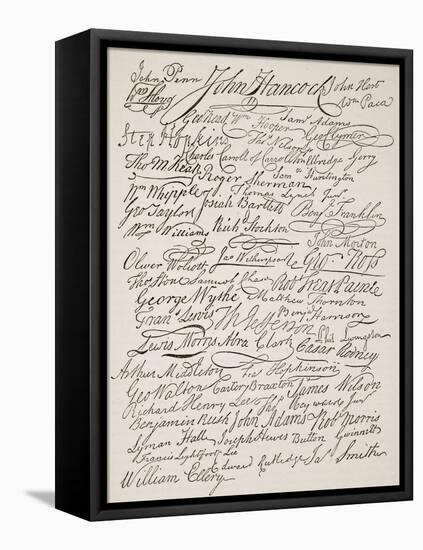 John Penn John Hancock John Hart
Wm Floyd Wm Paca
Geo Read Wm Hooper Saml Adams
Step Hopkins Thos Nelson Jr Geo Clymer
Charles Carroll of Carrollton Elbridge Gerry
Tho M Kean Roger Sherman Sam Huntington
Wm Whipple Thomas Lynch Junr
Geo Taylor Josiah Bartlett Benj Franklin
Wm Williams Richd Stockton John Morton
Oliver Wolcott Jno Witherspoon Geo Ross
Thos Stone Samuel Chase Robt Treat Paine
George Wythe Matthew Thornton
Frans Lewis Th Jefferson Benj Harrison
Lewis Morris Abra Clark Phil Livingston
Cæsar Rodney
Arthur Middleton Fra Hopkinson
Geo Walton Carter Braxton James Wilson
Richard Henry Lee Thos Heyward Junr
Benjamin Rush John Adams Rob Morris
Lyman Hall Joseph Hewes Button Gwinnett
Francis Lightfoot Lee
William Ellery Edward Rutledge Jas Smith